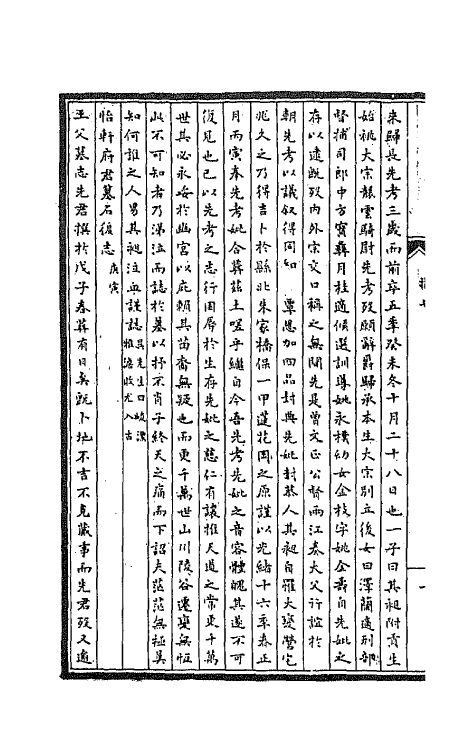 來歸長先考三歲而前卒五年癸未冬十月二十八日也一子曰其昶附貢生
始祧大宗襲雲騎尉先考歿願辭爵歸承本生大宗別立後女曰澤蘭適刑部
督捕司郎中方寶彝月桂適候選訓導姚永樸幼女金枝字姚金 自先姚之
存以逮既歿內外宗交口稱之無閒先是曾文正公督兩江奏大父行誼於
朝先考以議敘得同知 覃恩加四品封典先妣封恭人其昶自罹大 營宅
兆久之乃得吉卜於縣北朱家橋保一甲蓮花岡之原謹以光緒十六年春正
月丙寅奉先考妣合葬茲土嗟乎繼自今吾先考先妣之音容體魄其遂不可
復見也已以先考之志行困辱於生存先妣之慈仁有讓推天道之常更千萬
世其必永妥於幽宮以庇賴其苗裔無疑也而更千萬世山川陵谷遷變無恒
此不可知者乃涕泣而誌於墓以抒不肖子終天之痛而下詔夫茫茫無極莫
知何誰之人男其昶泣血謹誌 吳先生曰峻潔
雅澹敘尤入古
怡軒府君墓石後志 庚寅
王父墓志先君撰於戊子春葬有日矣既卜地不吉不克藏事而先君歿又適